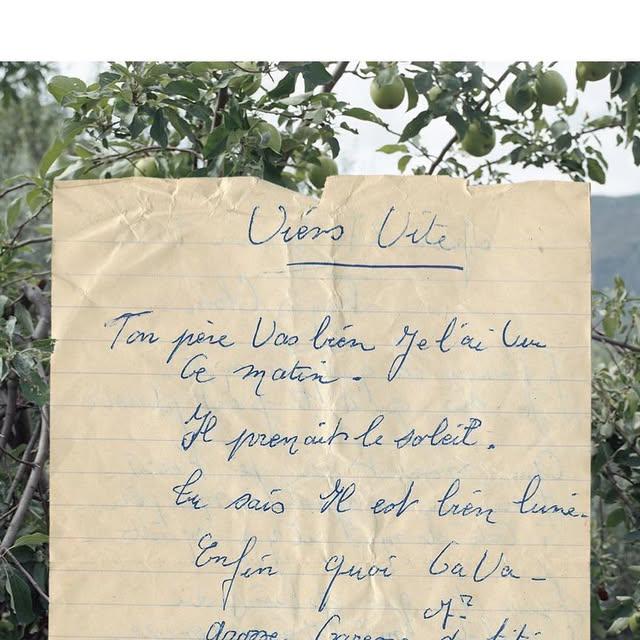 Viéns Vite
Ton père Vas bién Je l'ai Vu
Ce matin.
Il prenait le soleil.
Tu sais Il est bién luné.
Enfin quoi Ca Va -